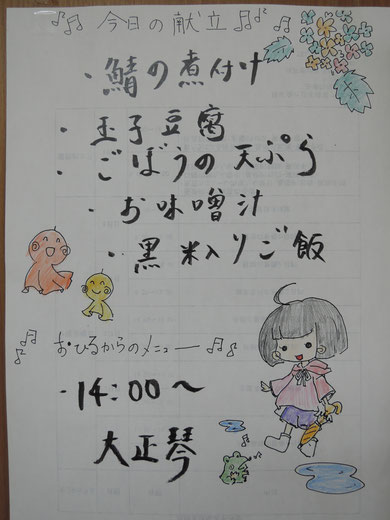 今日の献立
・鯖の煮付け
・玉子豆腐
・ごぼうの天ぷら
・お味噌汁
・黒米入りご飯
おひるからのメニュー
・14:00～
大正琴